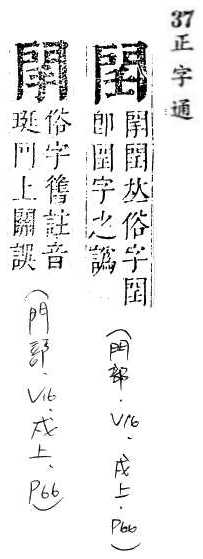 37 正字通
𠀤俗字
即 字之譌
(門部·V16·戌上·P66)
俗字舊註音
珽門上關誤
(門部·V16·戌上·P66)